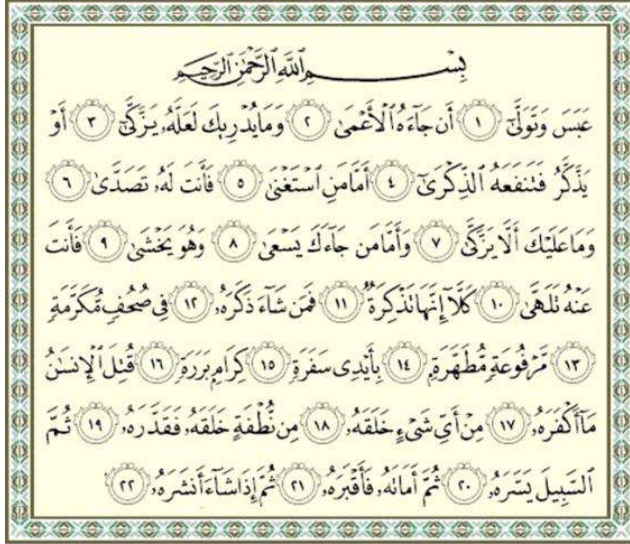 بِسْمِ ٱللَّهِ ٱلرَّحْمَٰنِ ٱلرَّحِيمِ
عَبَسَ وَتَوَلَّىٰٓ ١ أَن جَآءَهُ ٱلْأَعْمَىٰ ٢ وَمَا يُدْرِيكَ لَعَلَّهُۥ يَزَّكَّىٰٓ ٣ أَوْ
يَذَّكَّرُ فَتَنفَعَهُ ٱلذِّكْرَىٰٓ ٤ أَمَّا مَنِ ٱسْتَغْنَىٰ ٥ فَأَنتَ لَهُۥ تَصَدَّىٰ ٦
وَمَا عَلَيْكَ أَلَّا يَزَّكَّىٰ ٧ وَأَمَّا مَن جَآءَكَ يَسْعَىٰ ٨ وَهُوَ يَخْشَىٰ ٩ فَأَنتَ
عَنْهُ تَلَهَّىٰ ١٠ كَلَّآ إِنَّهَا تَذْكِرَةٌ ١١ فَمَن شَآءَ ذَكَرَهُۥ ١٢ فِى صُحُفٍ مُّكَرَّمَةٍ
١٣ مَّرْفُوعَةٍ مُّطَهَّرَةٍۭ ١٤ بِأَيْدِى سَفَرَةٍ ١٥ كِرَامٍۭ بَرَرَةٍ ١٦ قُتِلَ ٱلْإِنسَٰنُ
مَآ أَكْفَرَهُۥ ١٧ مِنْ أَىِّ شَىْءٍ خَلَقَهُۥ ١٨ مِن نُّطْفَةٍ خَلَقَهُۥ فَقَدَّرَهُۥ ١٩ ثُمَّ
ٱلسَّبِيلَ يَسَّرَهُۥ ٢٠ ثُمَّ أَمَاتَهُۥ فَأَقْبَرَهُۥ ٢١ ثُمَّ إِذَا شَآءَ أَنشَرَهُۥ ٢٢